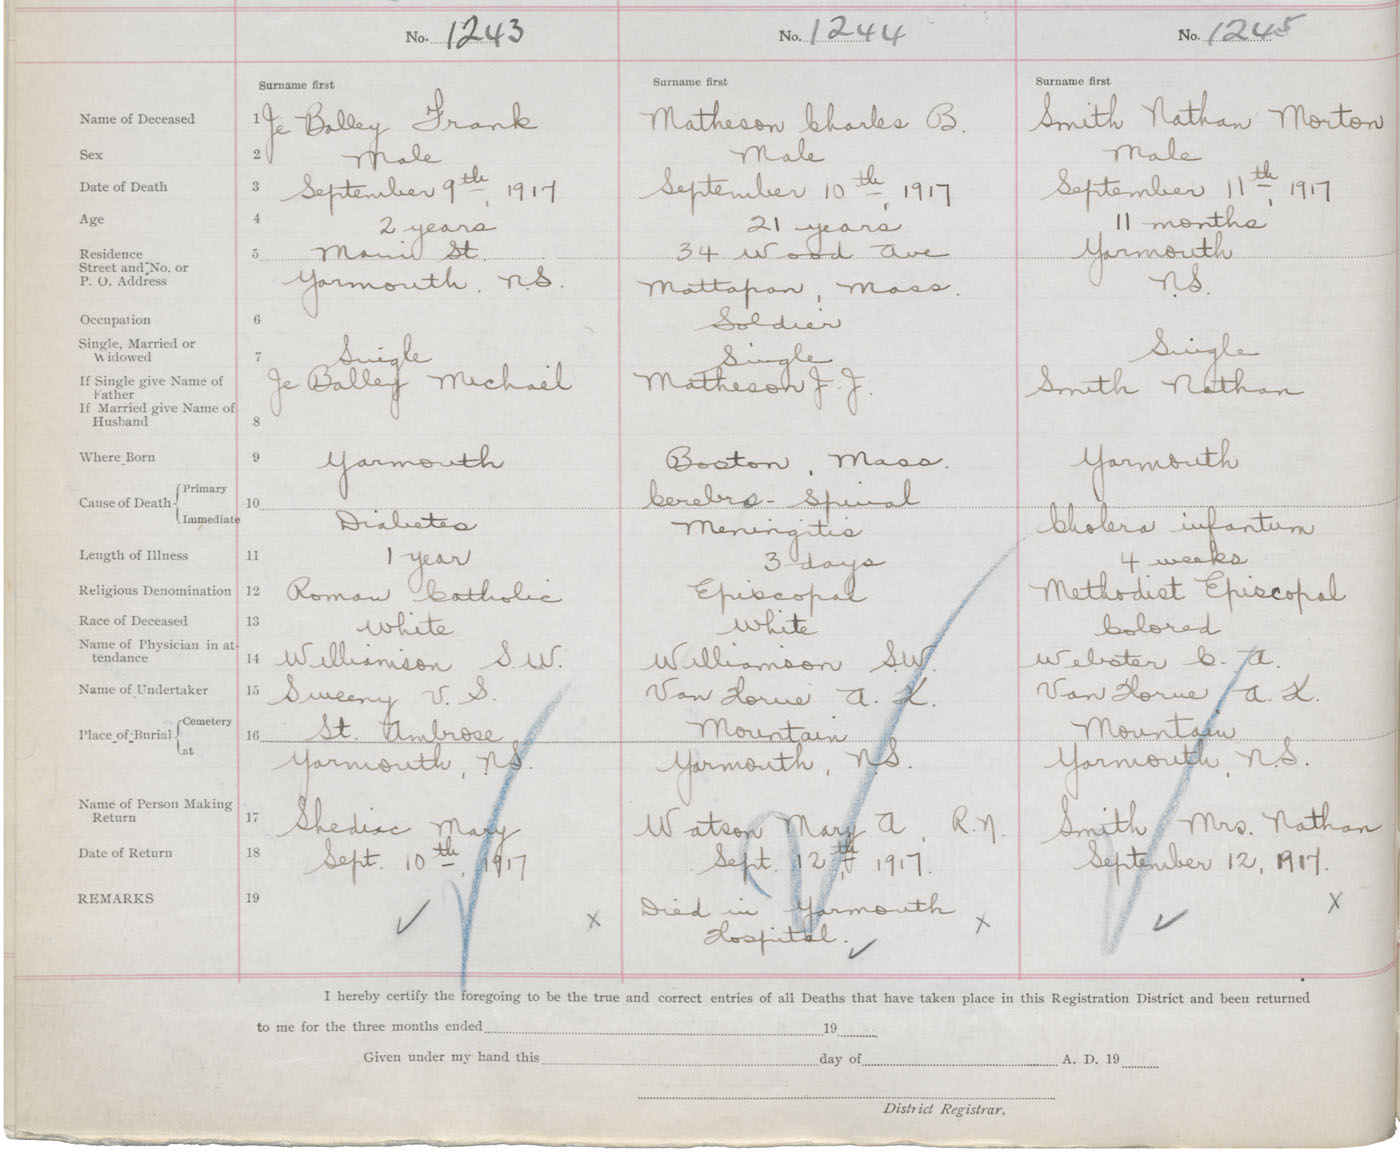 No. 1243 No. 1244 No. 1245
Surname first Surname first Surname first
Name of Deceased 1 Je Balley Frank Matheson Charles B. Smith Nathan Morton
Sex 2 Male Male Male
Date of Death 3 September 9th, 1917 September 10th, 1917 September 11th, 1917
Age 4 2 years 21 years 11 months
Residence 5 Main St. 34 Wood Ave Yarmouth
Street and No. or
P. O. Address Yarmouth. N.S. Mattapan, Mass. N.S.
Occupation 6 Soldier
Single, Married or
Widowed 7 Single Single Single
If Single give Name of
Father Je Balley Michael Matheson J. J. Smith Nathan
If Married give Name of
Husband 8
Where Born 9 Yarmouth Boston, Mass. Yarmouth
Cause of Death Primary 10 Cerebro-Spinal
Immediate Diabetes Meningitis Cholera infantum
Length of Illness 11 1 year 3 days 4 weeks
Religious Denomination 12 Roman Catholic Episcopal Methodist Episcopal
Race of Deceased 13 White White Colored
Name of Physician in at-
tendance 14 Williamson S.W. Williamson S.W. Webster C. A.
Name of Undertaker 15 Sweeny V. S. Van Horne A. K. Van Horne A. K.
Place of Burial Cemetery 16 St. Ambrose Mountain Mountain
at Yarmouth, N.S. Yarmouth, N.S. Yarmouth, N.S.
Name of Person Making
Return 17 Shediac Mary Watson Mary A, R.N. Smith Mrs. Nathan
Date of Return 18 Sept. 10th, 1917 Sept. 12th, 1917. September 12, 1917.
REMARKS 19 Died in Yarmouth
Hospital.
I hereby certify the foregoing to be the true and correct entries of all Deaths that have taken place in this Registration District and been returned
to me for the three months ended 19
Given under my hand this day of A. D. 19
District Registrar.